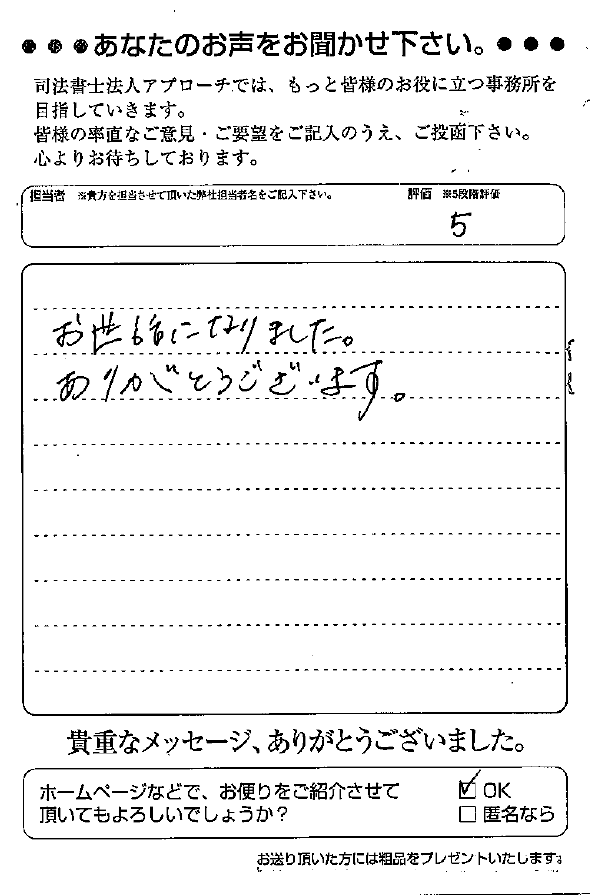 ●●●あなたのお声をお聞かせ下さい。●●●
司法書士法人アプローチでは、もっと皆様のお役に立つ事務所を
目指していきます。
皆様の率直なご意見・ご要望をご記入のうえ、ご投函下さい。
心よりお待ちしております。
担当者 ※貴方を担当させて頂いた弊社担当者名をご記入下さい。 評価 ※5段階評価
5
お世話になりました。
ありがとうございます。
貴重なメッセージ、ありがとうございました。
ホームページなどで、お便りをご紹介させて ☑ OK
頂いてもよろしいでしょうか？ □ 匿名なら
お送り頂いた方には粗品をプレゼントいたします。